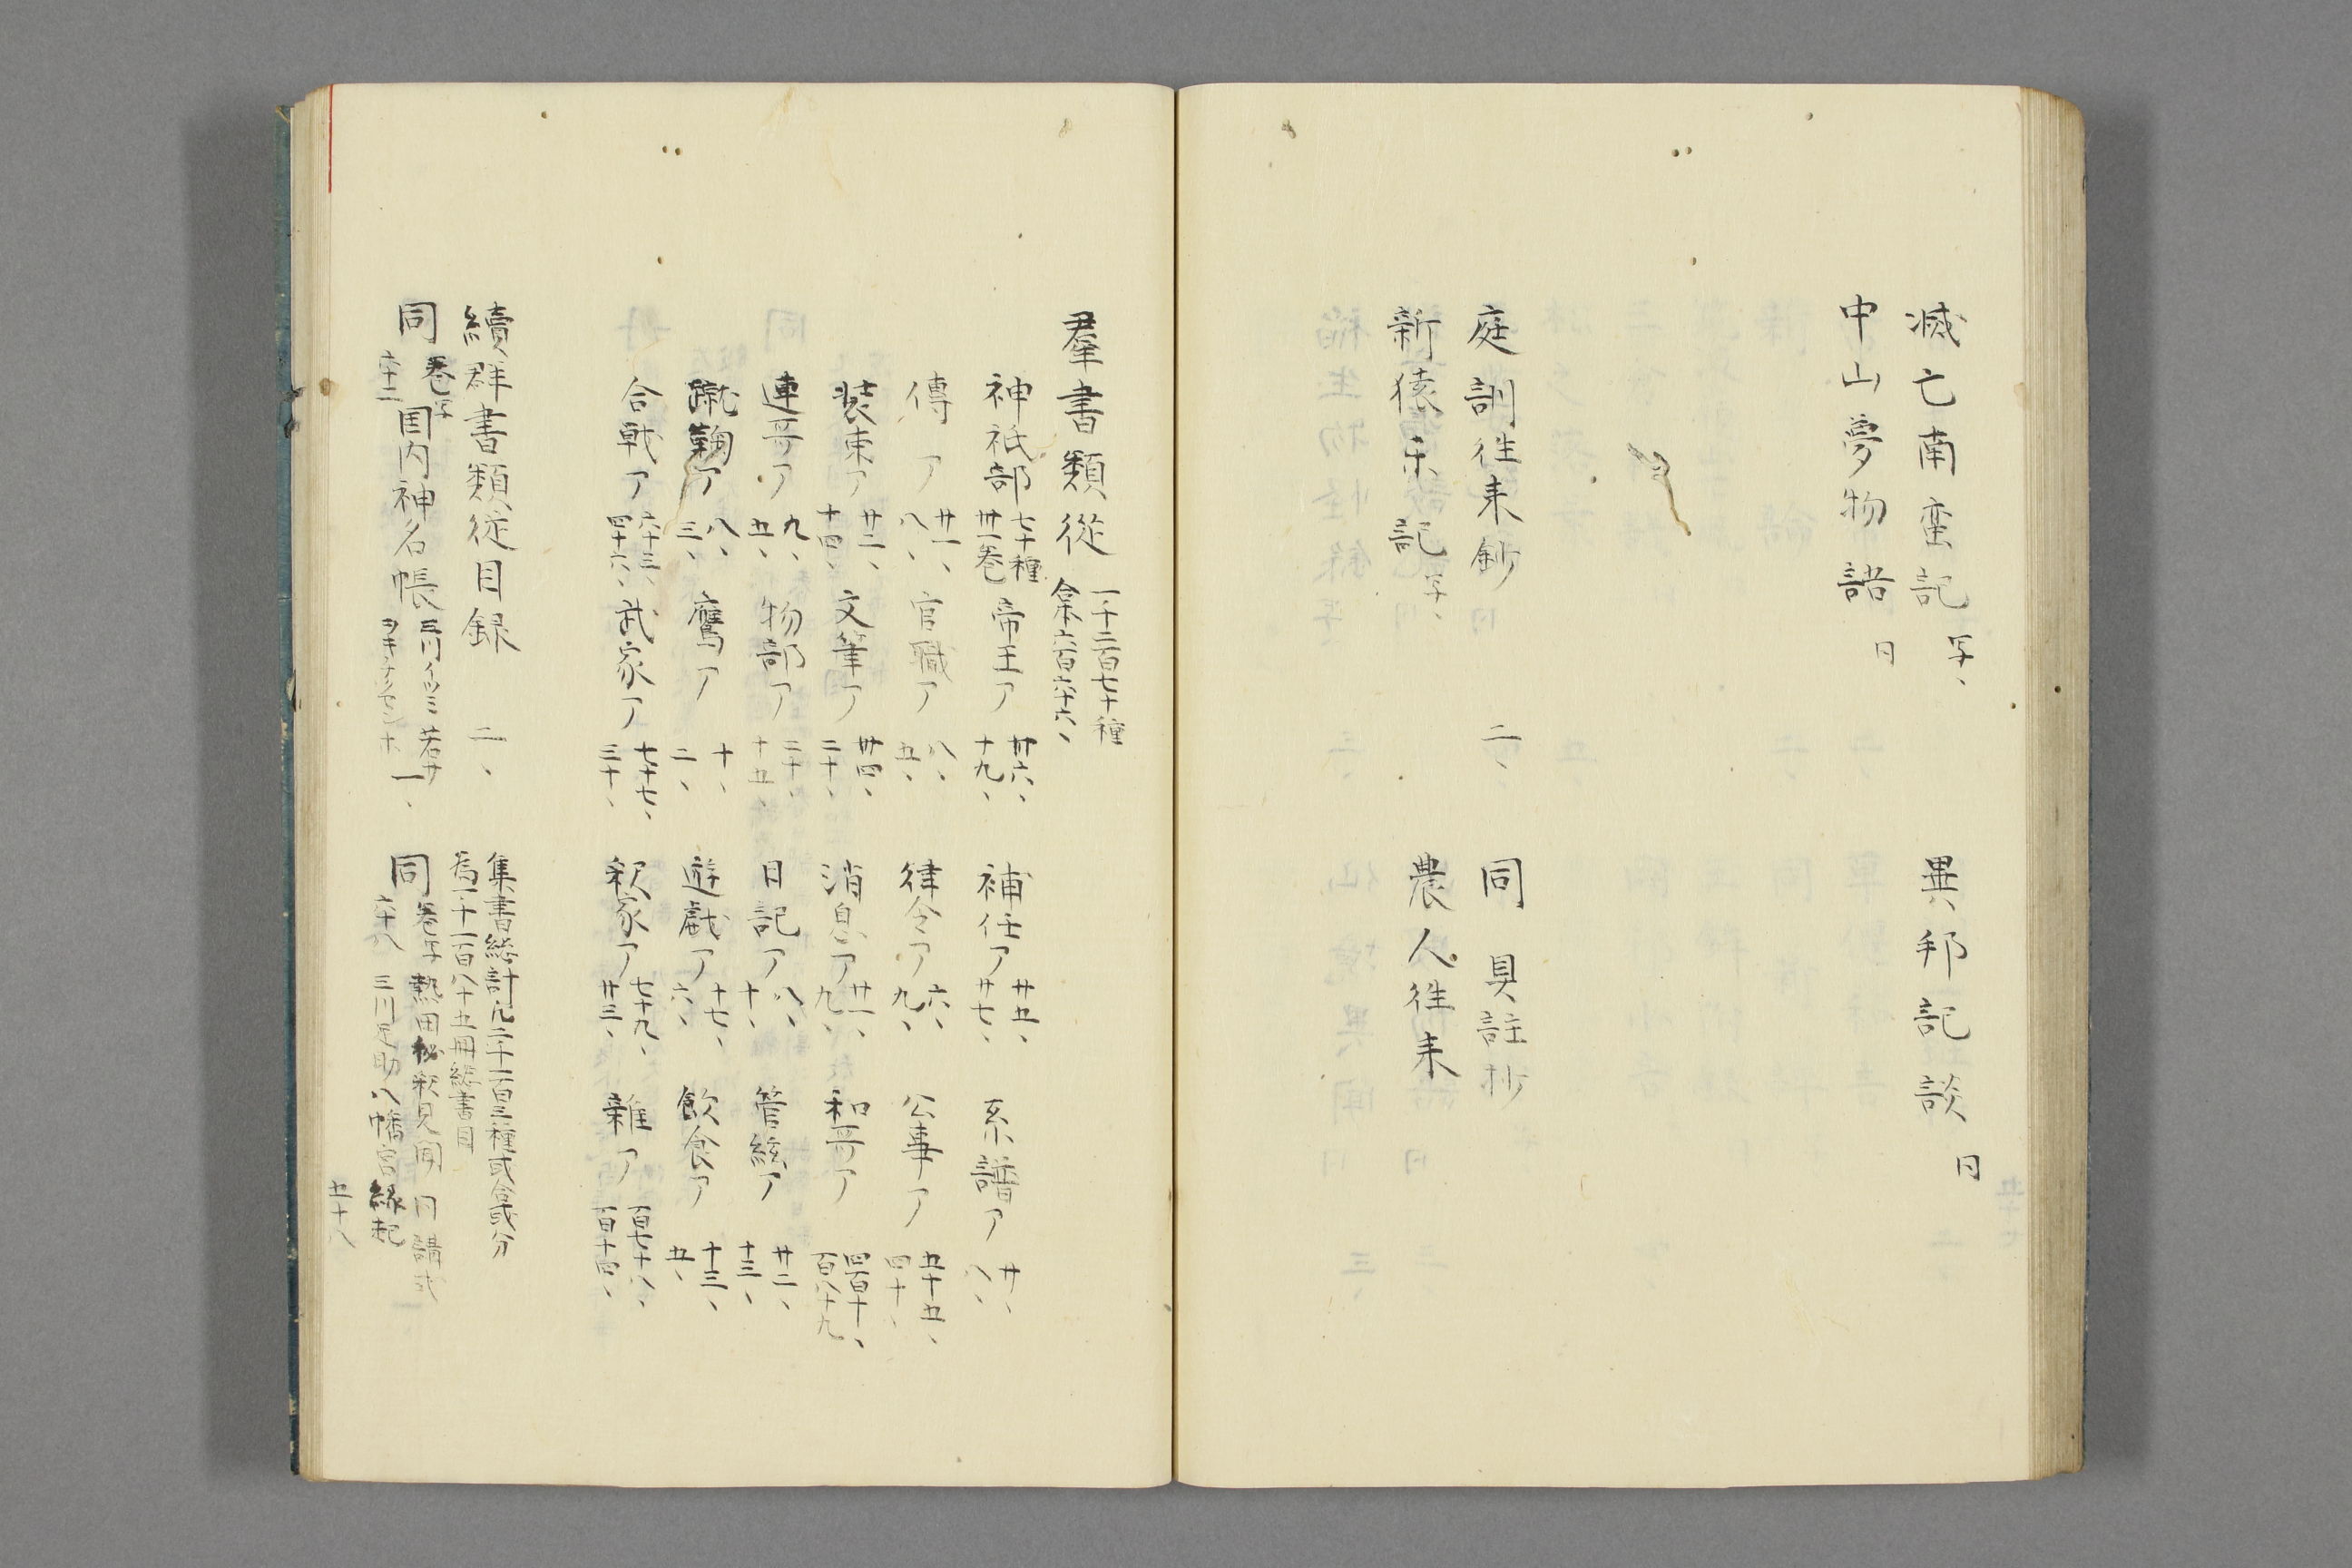 滅亡南蛮記 写、
異邦記談 同
中山夢物語 同
庭訓往来鈔 二、
同 具註抄
新猿楽記 写、
農人往来
羣書類従 一千二百七十種 合六百六十六、
神祇部 七十種 卅一巻 帝王了 卅六、十九、 補任了 廿五、廿七、 系譜了 廿、八、
傳了 廿一、八、 官職了 八、五、 律令了 六、九、 公事了 五十五、四十、
装束了 廿二、十四、 文筆了 卅四、二十、 消息了 廿一、九、 和哥了 四百十、百八十九
連哥了 九、五、 物語了 二十、十五、 日記了 八、十、 管絃了 廿二、十三、
蹴鞠了 八、三、 鷹了 十、二、 遊戯了 十七、六、 飲食了 十三、五、
合戦了 六十三、四十六、 武家了 七十七、三十、 釈家了 七十九、廿三、 雑了 百七十八、百十四、
續群書類従目録 二、
集書総計凡二千一百三種或合或分
為一千一百八十五冊総書目
同 巻 六十二 写 国内神名帳 三川 伊豆 若サ 一、
同 巻 六十八 写 熱田秘釈見聞 同講式
三川 八幡宮縁起
五十八